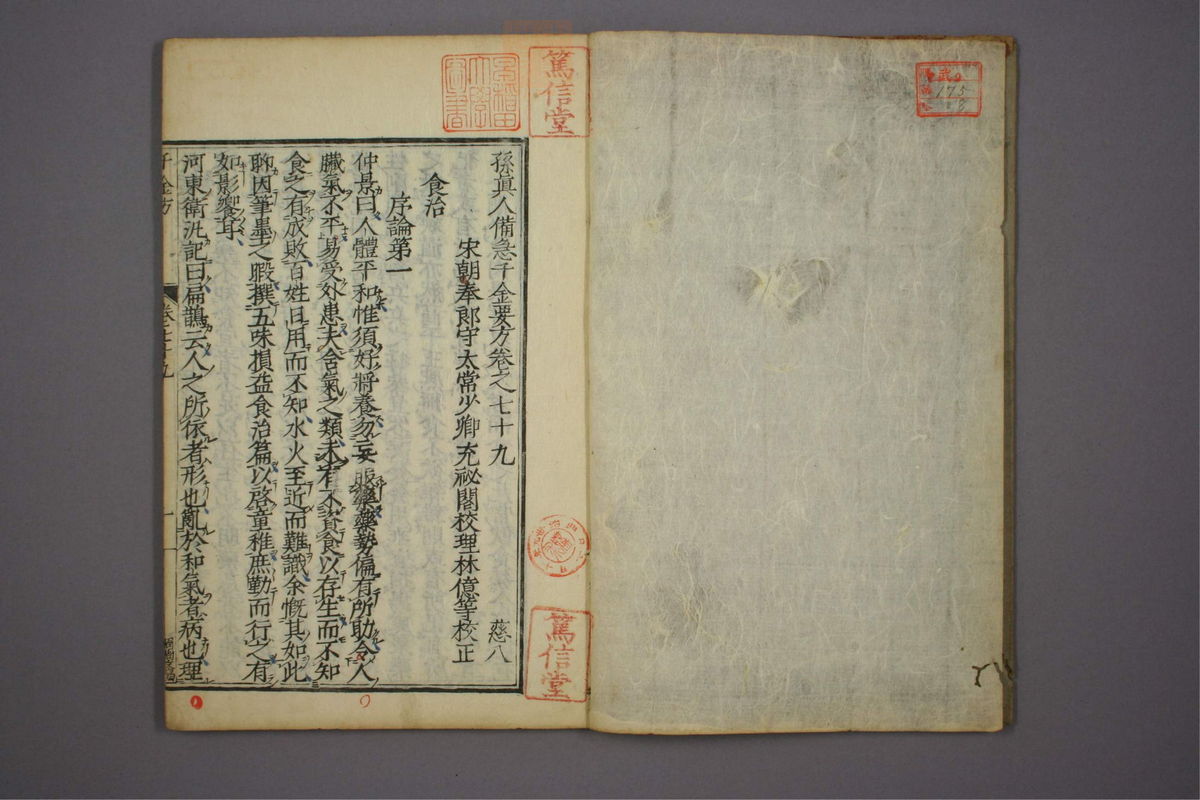 孫真人備急千金要方卷之七十九 慈八
宋朝奉郎守太常少卿充祕閣校理林億等校正
食治
序論第一
仲景曰人體平和惟須好將養勿妄服藥藥勢偏有所助令人
臟氣不平易受外患夫含氣之類未有不資食以存生而不知
食之有成敗百姓日用而不知水火至近而難識余慨其如此
聊因筆墨之暇撰五味損益食治篇以啓童稚庶勤而行之有
如影響耳
河東衛汛記曰扁鵲云人之所依者形也亂於和氣者病也理
千金方
卷七十九
一
篤信堂
篤信堂
175